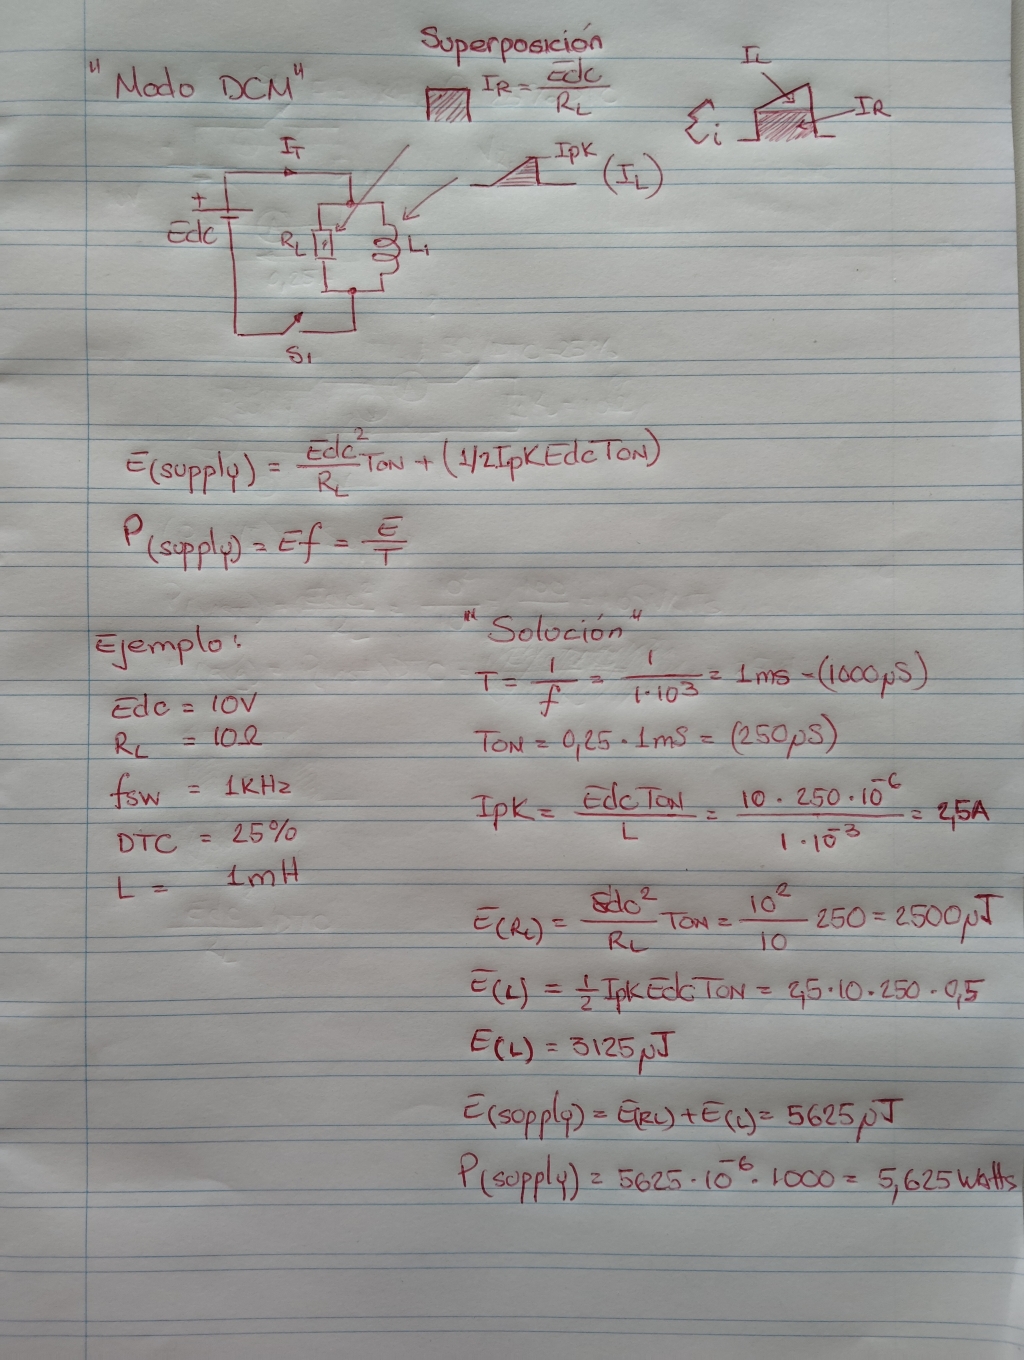 Superposición
"Modo DCM"
IR = Edc/RL
IL
IR
Σi
IT
Ipk (IL)
+
Edc
RL
L1
S1
E(supply) = Edc²/RL TON + (1/2IpKEdcTON)
P(supply) = Ef = E/T
Ejemplo:
Edc = 10V
RL = 10Ω
fsw = 1KHz
DTC = 25%
L = 1mH
"Solución"
T = 1/f = 1/1·10³ = 1ms - (1000µS)
TON = 0,25 · 1mS = (250µS)
IpK = EdcTON/L = 10 · 250·10⁻⁶/1·10⁻³ = 2,5A
E(RL) = Edc²/RL TON = 10²/10 250 = 2500µJ
E(L) = 1/2 IpKEdcTON = 2,5·10·250·0,5
E(L) = 3125µJ
E(supply) = E(RL) + E(L) = 5625µJ
P(supply) = 5625·10⁻⁶·1000 = 5,625 Watts